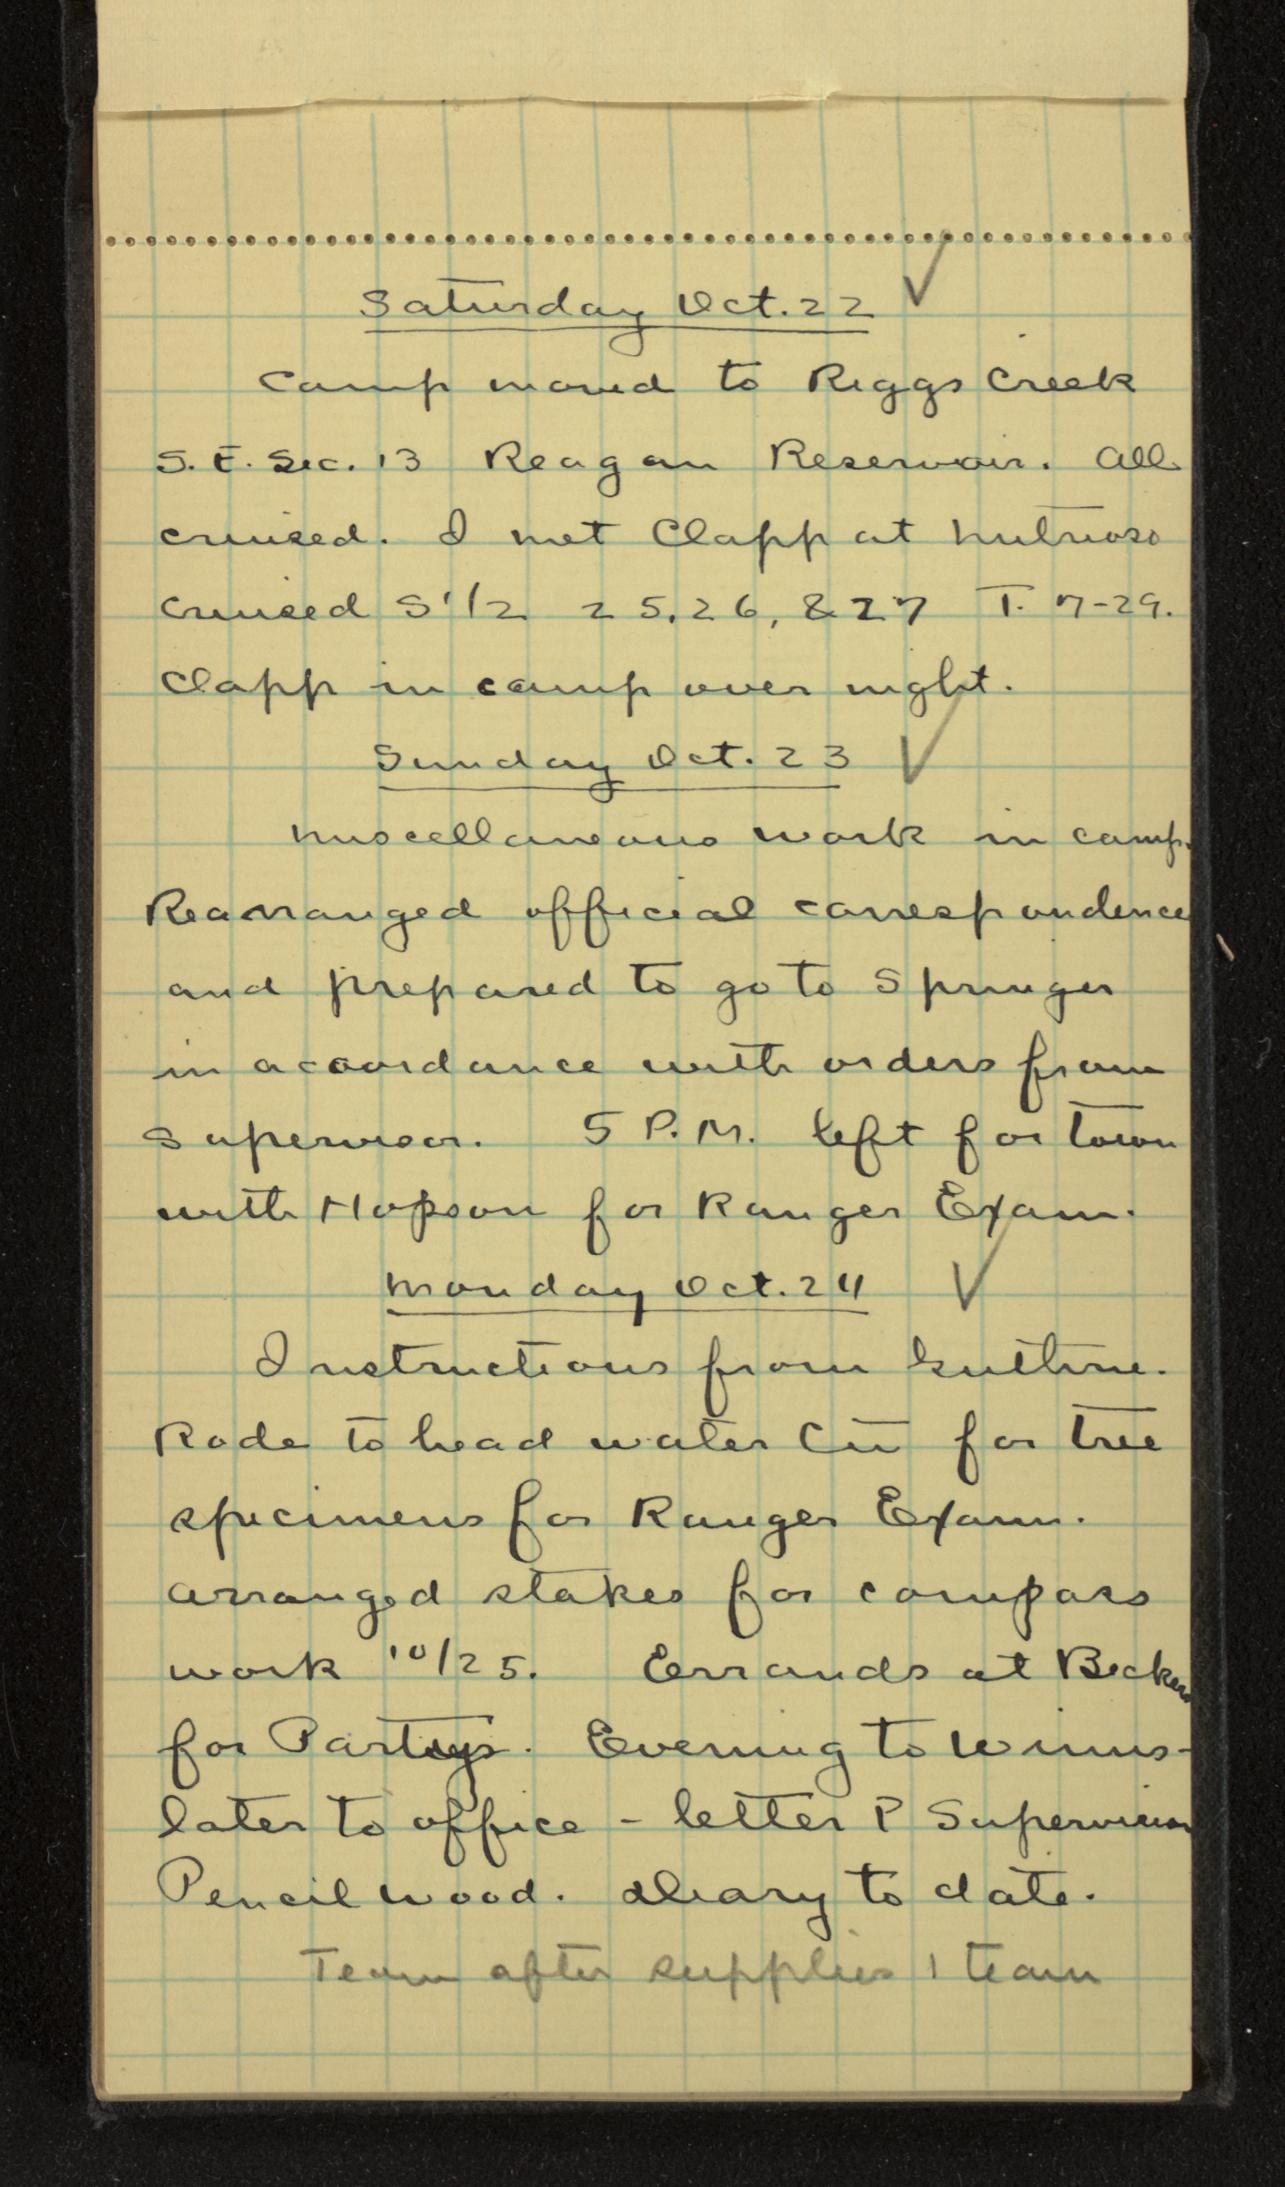 Saturday Oct. 22 ✓
Camp moved to Riggs Creek
S.E. Sec. 13 Reagan Reservoir. All
cruised. I met Clapp at Nutrioso
cruised S 1/2 25, 26, & 27 T. 7-29.
Clapp in camp over night.
Sunday Oct. 23 ✓
Miscellaneous work in camp.
Rearranged official correspondence
and prepared to go to Springer
in accordance with orders from
Supervisor. 5 P.M. left for town
with Hopson for Ranger Exam.
Monday Oct. 24 ✓
Instructions from Guthrie.
Rode to head water for tree
specimens for Ranger Exam.
Arranged stakes for compass
work 10/25. Errands at Beckers
for Partys. Evening to Winns-
later to office - letter Supervisor
Pencil wood. Diary to date.
Team after supplies 1 team